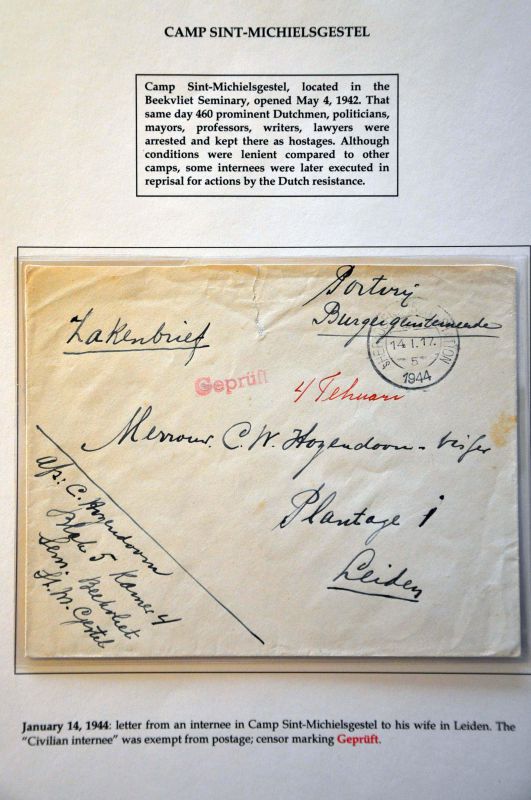 CAMP SINT-MICHIELSGESTEL
Camp Sint-Michielsgestel, located in the
Beekvliet Seminary, opened May 4, 1942. That
same day 460 prominent Dutchmen, politicians,
mayors, professors, writers, lawyers were
arrested and kept there as hostages. Although
conditions were lenient compared to other
camps, some internees were later executed in
reprisal for actions by the Dutch resistance.
Portvrij
Zakenbrief
14 I. 17.
5
1944
Geprüft
Mevrouw. C. W. Hogendoorn - Visser
Plantage 1
Leiden
C. Hogendoorn
Blok 5 Kamer 4
Sem. Beekvliet
St. M. Gestel
January 14, 1944: letter from an internee in Camp Sint-Michielsgestel to his wife in Leiden. The
"Civilian internee" was exempt from postage; censor marking Geprüft.